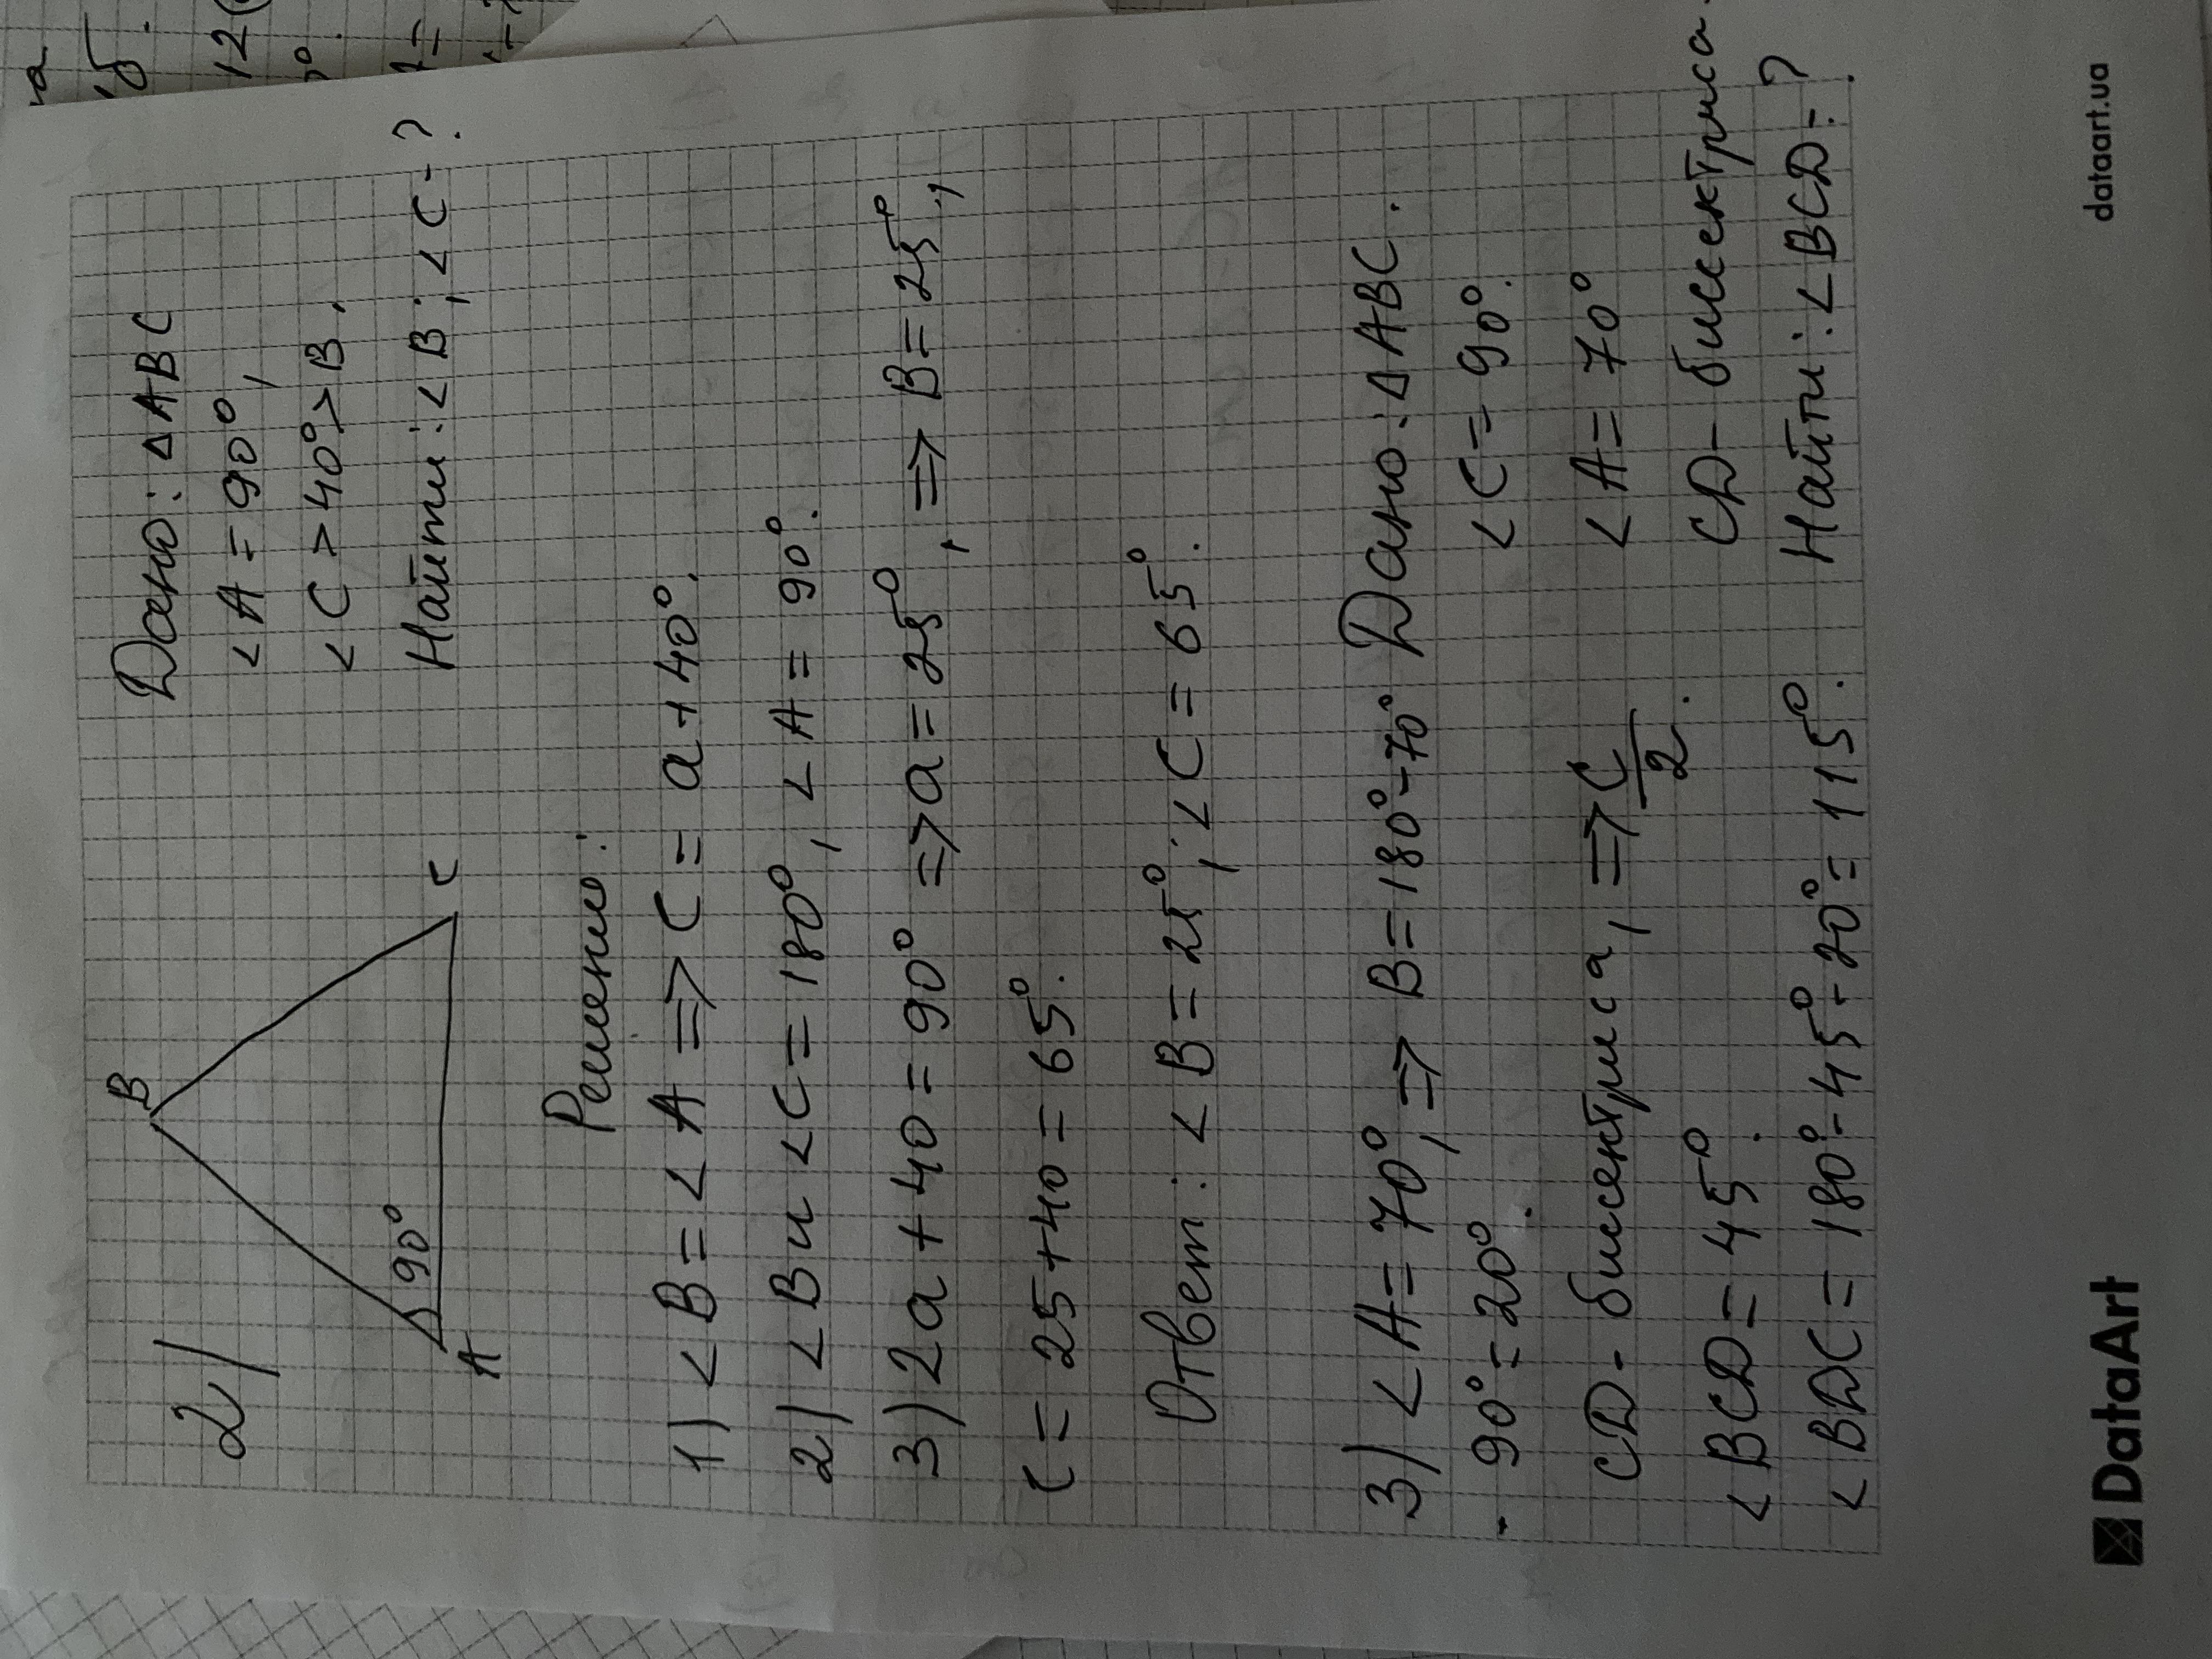 2)
B
90°
A
C
Дано: △ABC
<A = 90°,
<C > 40° > B.
Найти: <B; <C-?
Решение:
1) <B = <A => C = a + 40°.
2) <B и <C = 180°, <A = 90°.
3) 2a + 40 = 90° => a = 25°, => B = 25°.,
C = 25 + 40 = 65°.
Ответ: <B = 25°; <C = 65°.
3) <A = 70°, => B = 180° - 70°
- 90° = 20°.
CD - бисектриса, => C/2.
<BCD = 45°.
<BDC = 180° - 45° - 20° = 115°.
Дано: △ABC.
<C = 90°.
<A = 70°
CD - биссектриса.
Найти: <BCD = ?
DataArt
dataart.ua
а
б.
12(